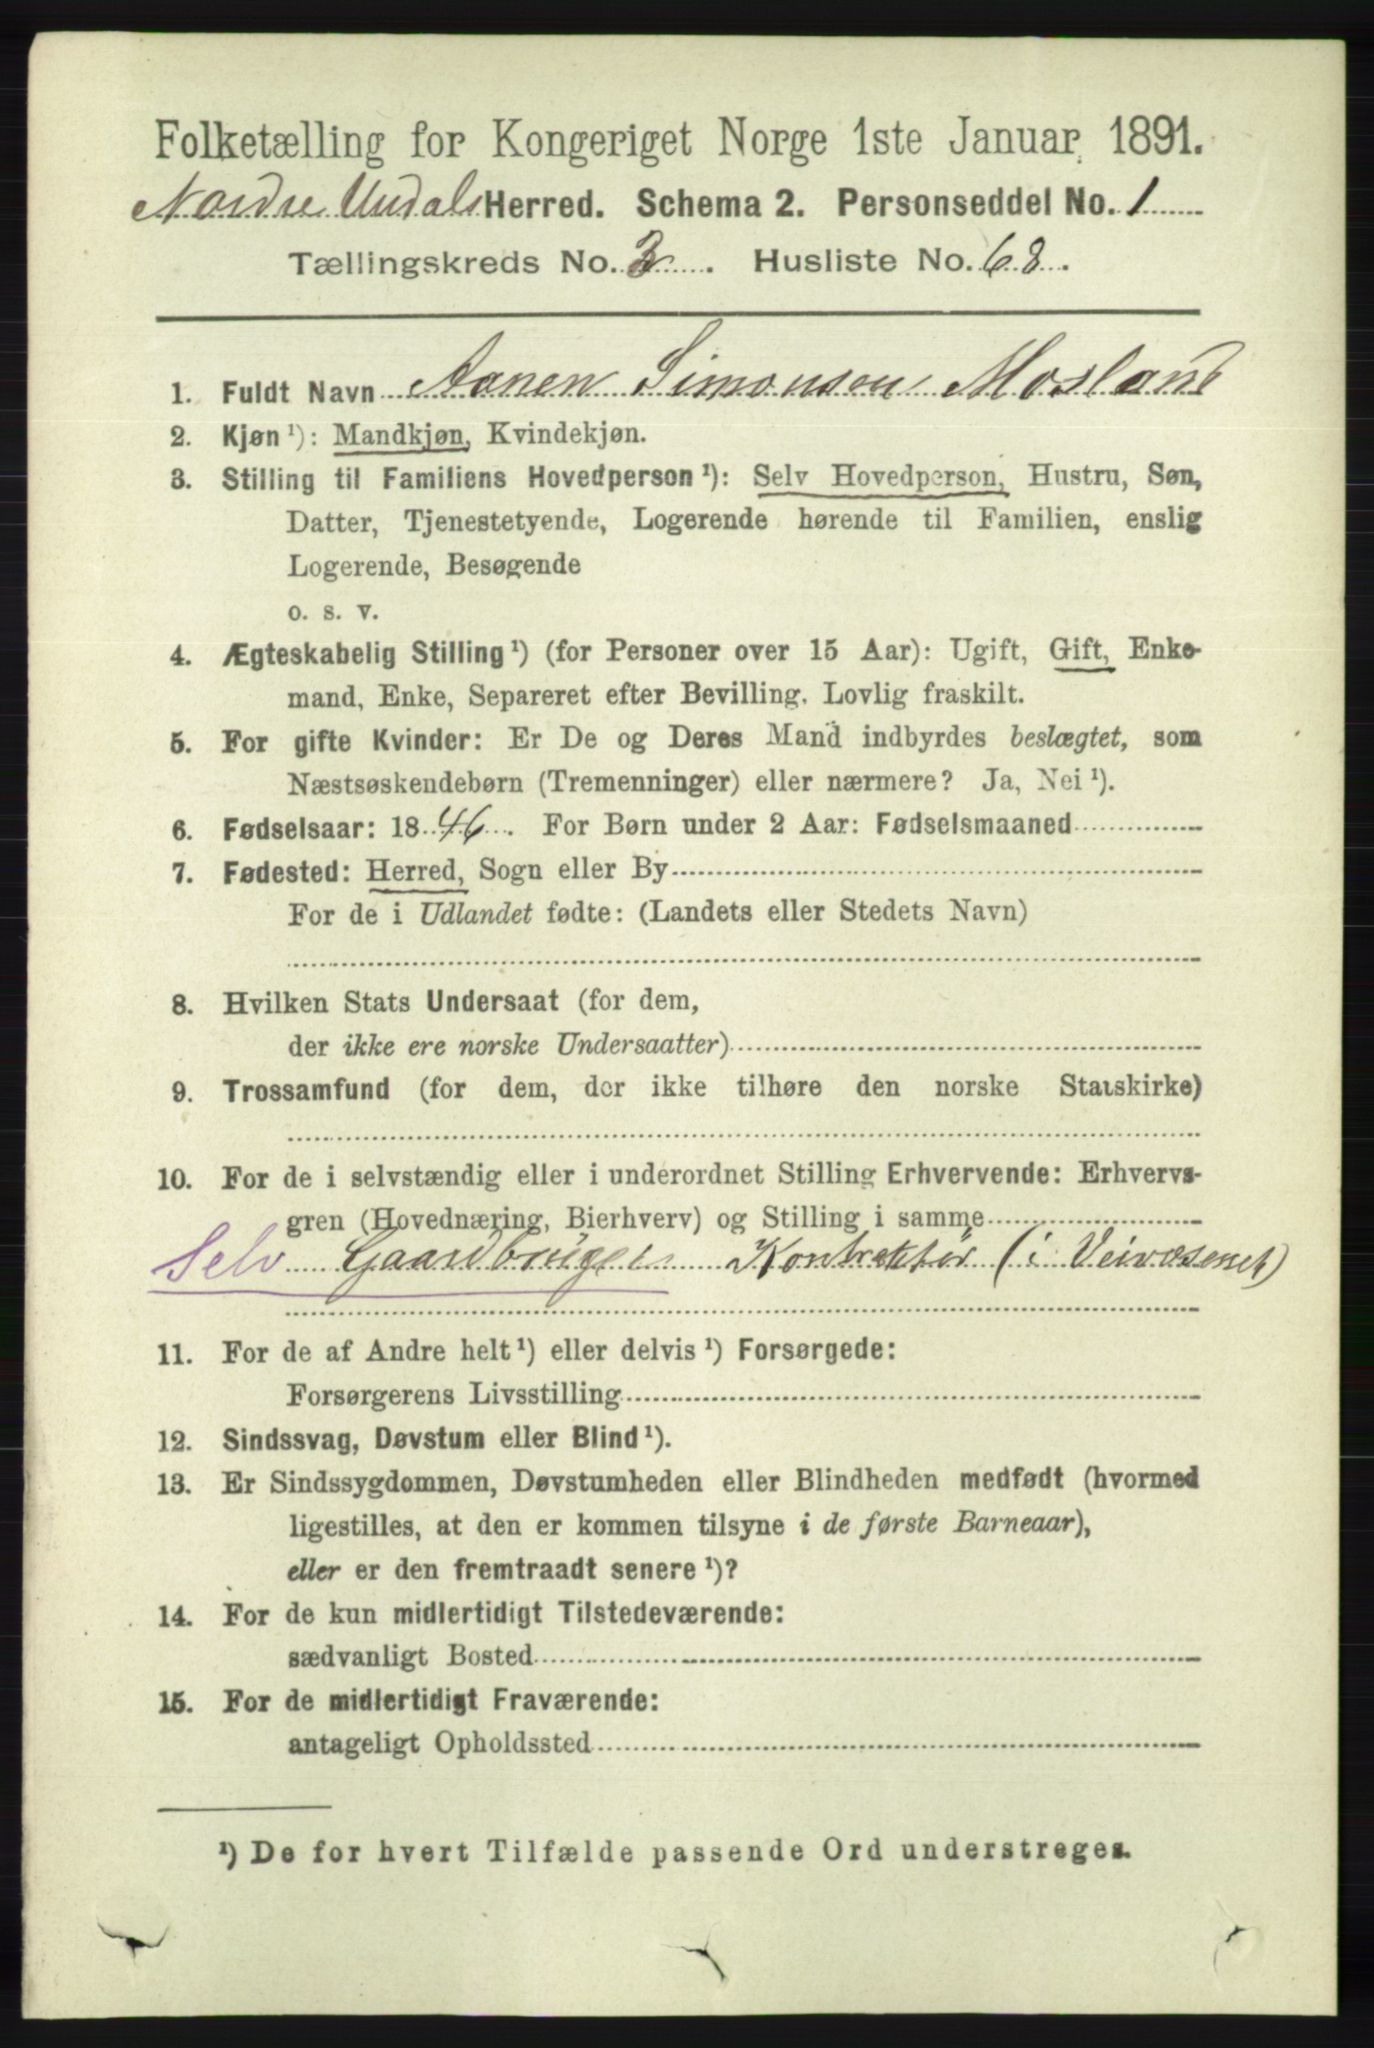 Folketælling for Kongeriget Norge 1ste Januar 1891.
Nordre Undals Herred. Schema 2. Personseddel No. 1
Tællingskreds No. 3. Husliste No. 68.
1. Fuldt Navn Aanen Simonsen Mosland
2. Kjøn ¹): Mandkjøn, Kvindekjøn.
3. Stilling til Familiens Hovedperson ¹): Selv Hovedperson, Hustru, Søn,
Datter, Tjenestetyende, Logerende hørende til Familien, enslig
Logerende, Besøgende
o. s. v.
4. Ægteskabelig Stilling ¹) (for Personer over 15 Aar): Ugift, Gift, Enke-
mand, Enke, Separeret efter Bevilling. Lovlig fraskilt.
5. For gifte Kvinder: Er De og Deres Mand indbyrdes beslægtet, som
Næstsøskendebørn (Tremenninger) eller nærmere? Ja, Nei ¹).
6. Fødselsaar: 1846. For Børn under 2 Aar: Fødselsmaaned
7. Fødested: Herred, Sogn eller By
For de i Udlandet fødte: (Landets eller Stedets Navn)
8. Hvilken Stats Undersaat (for dem,
der ikke ere norske Undersaatter)
9. Trossamfund (for dem, der ikke tilhøre den norske Statskirke)
10. For de i selvstændig eller i underordnet Stilling Erhvervende: Erhvervs-
gren (Hovednæring, Bierhverv) og Stilling i samme
Selv Gaardbruger Kontraktør (i Veivæsenet)
11. For de af Andre helt ¹) eller delvis ¹) Forsørgede:
Forsørgerens Livsstilling
12. Sindssvag, Døvstum eller Blind ¹).
13. Er Sindssygdommen, Døvstumheden eller Blindheden medfødt (hvormed
ligestilles, at den er kommen tilsyne i de første Barneaar),
eller er den fremtraadt senere ¹)?
14. For de kun midlertidigt Tilstedeværende:
sædvanligt Bosted
15. For de midlertidigt Fraværende:
antageligt Opholdssted
¹) De for hvert Tilfælde passende Ord understreges.